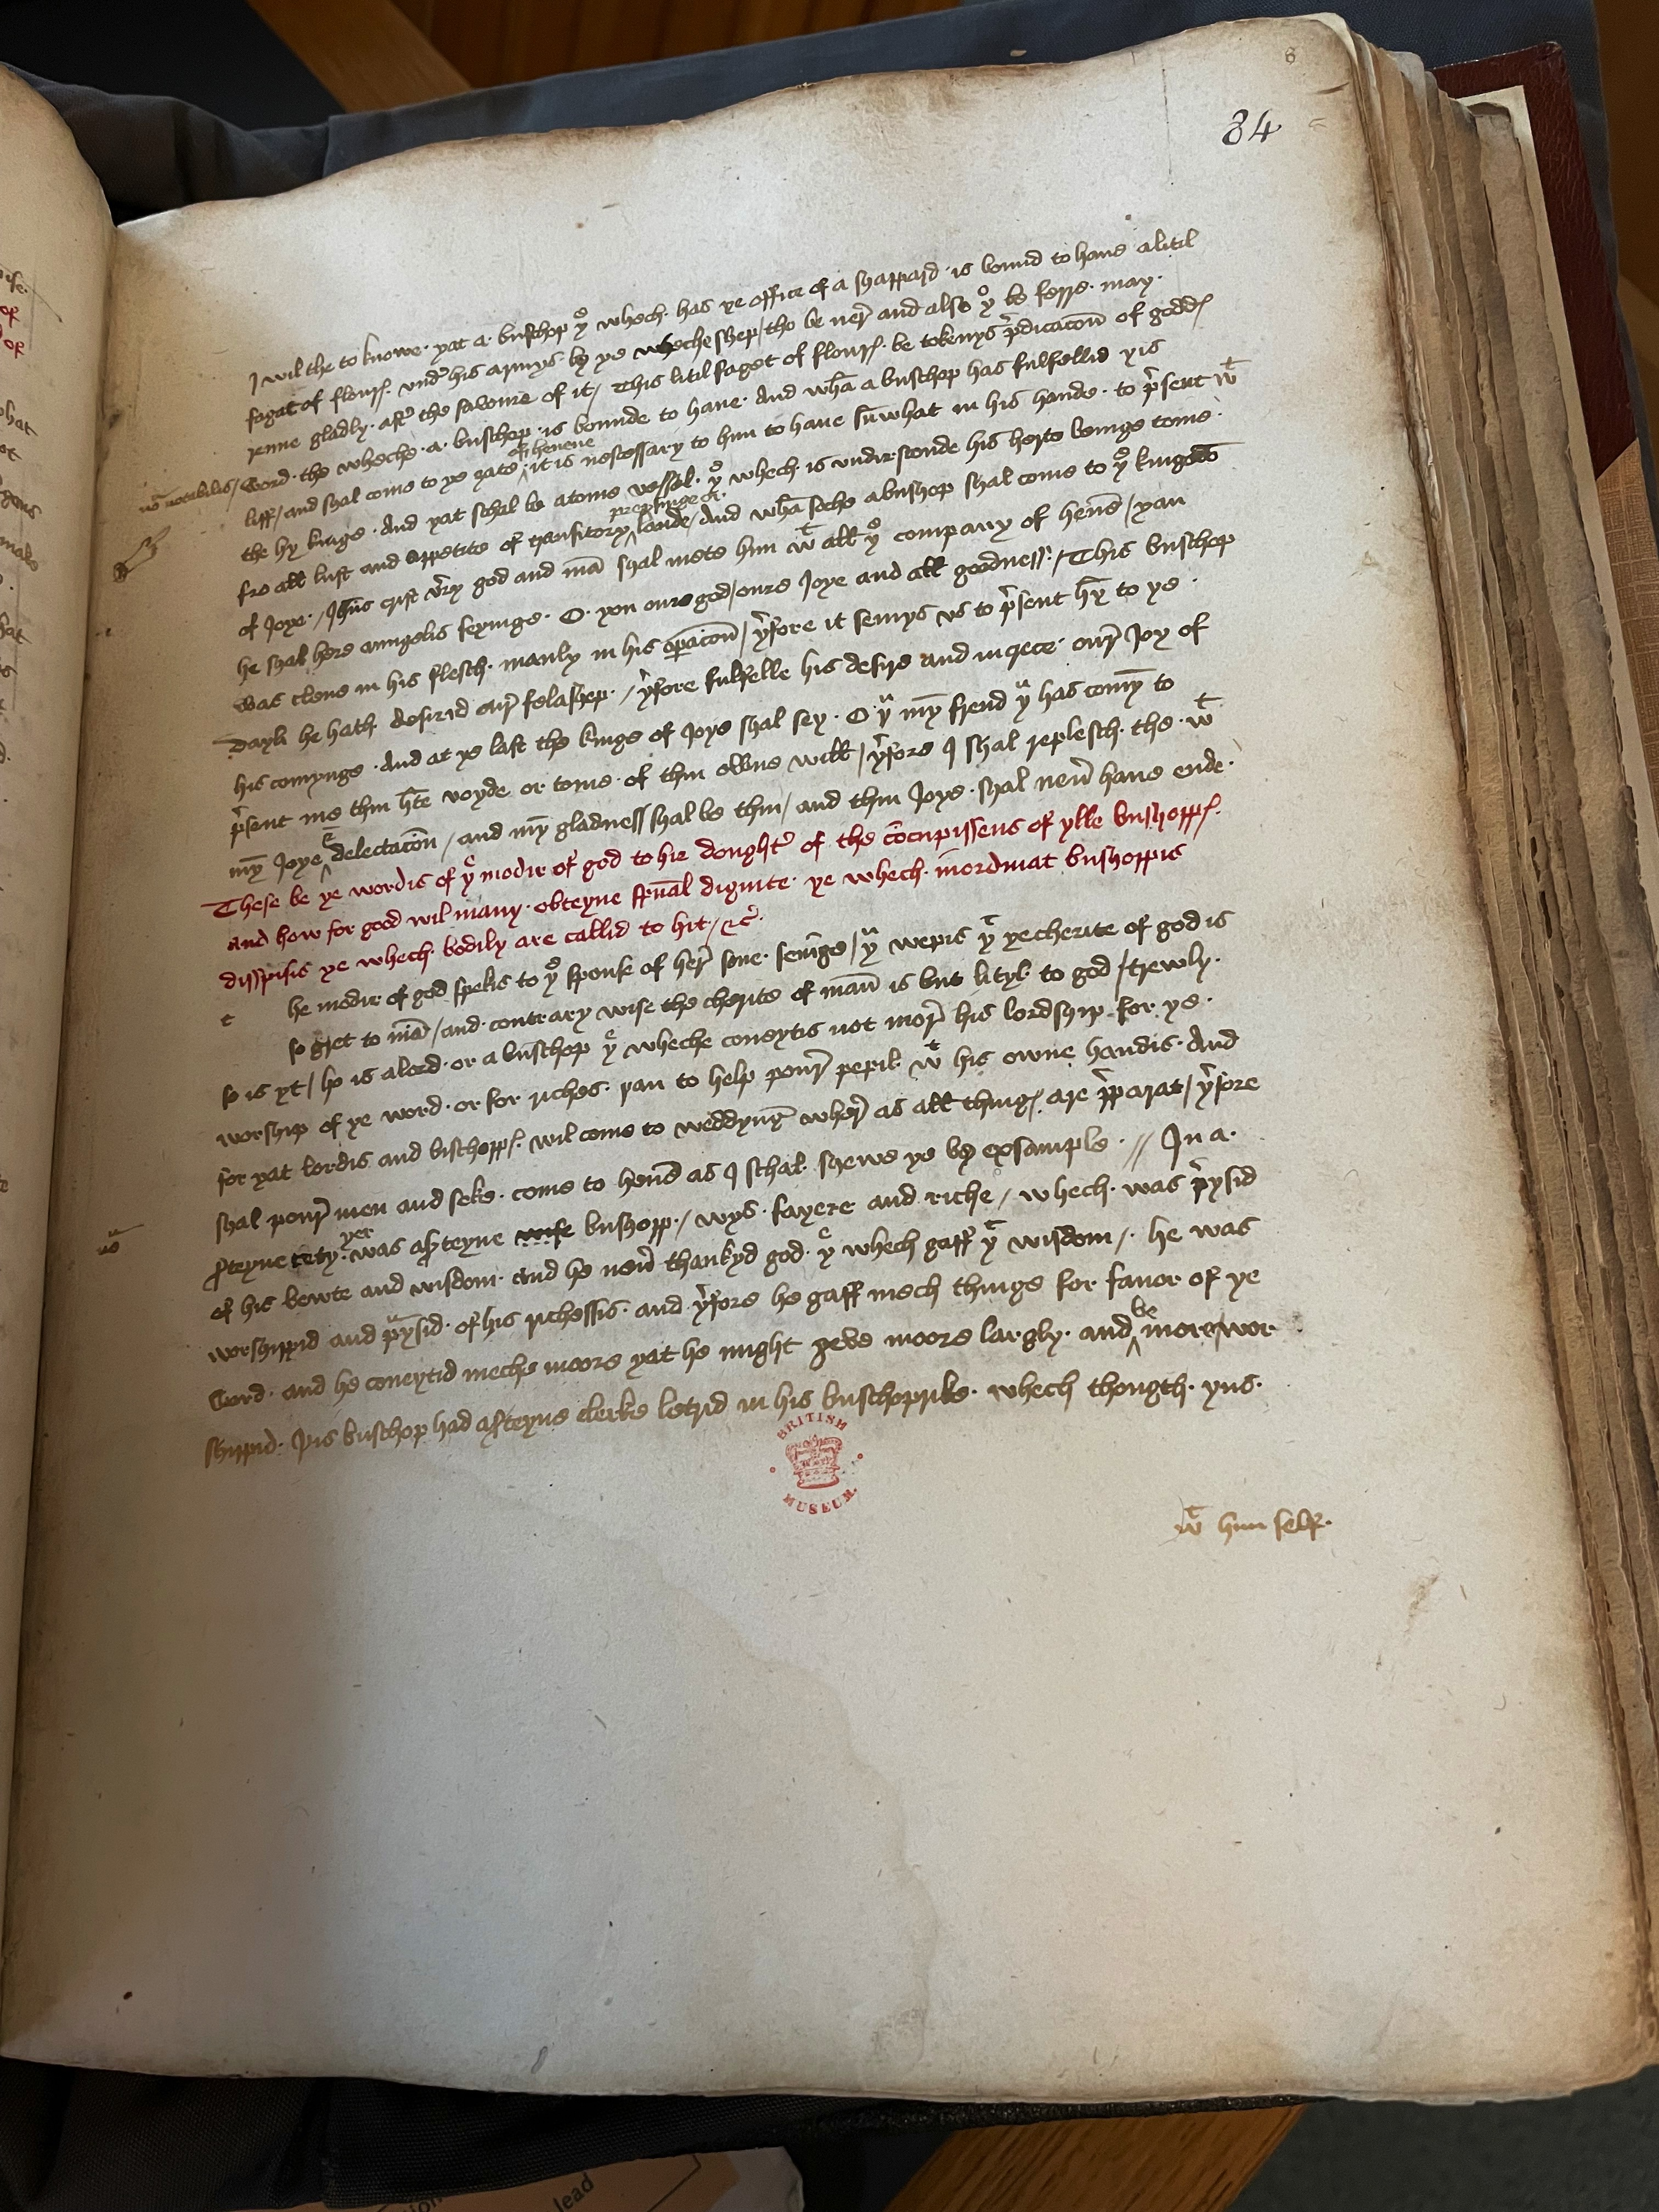 84
I wil the to knowe · yat a · buschop yͦ whech · has ye office of a shappard · is bound to haue alitil
fagat of flours · vnder his armys · by ye wheche shep / tho be ner and also yͦ be ferre · may ·
renne gladly · aftr the savoure of it / This litil fagot of flours · be tokenys predicacōn of goddes
word · the wheche · a · buschop · is bounde to haue · And whā a buschop has fulfellid yis
no notabilis /
liff / and shal come to ye yate of heuene it is nescessary to him to haue sūwhat in his hande · to present wt
the hy kinge · And yat schal be atome vessel · yͦ whech · is vndirstonde his herte beinge tome ·
fro all lust and appetite of transitory londe / And whā seche abushop shal come to yͦ kingdō
of Joye · / Jhūs crist very god and mā shal mete him wt all yͦ company of heuē / yan
he shal here aungelis seyinge · O · you oure god / oure Joye and all goodness · / This buschop
was clene in his flesch · manly in his opacōn / yrfore it semys vs to present hȳ to ye ·
Dayli he hath · desirid our felashep · / yrfore fulfelle his desyre and increce · our Joy of
his comynge · And at ye last the kinge of Joye shal sey · O yu mȳ frend yu has comȳ to
present me thin hte voyde or tome · of thin owne will / yrfore I shal replesch · the · wt
mȳ Joye & delectacōn / and mȳ gladness shal be thin / and thin Joye · shal neu̅ haue ende ·
These be ye wordis of ye modir of god to hir doughtr of the cōcupissens of ylle bushopps ·
and how for good wil many · obteyne spūal dignite · ye whech · inordinat bushoppis
disspisis ye whech · bodily are callid to hit / &c ·
t he modir of god spekis to yͦ spouse of her sone · seinge / yu wepis yt yecherite of god is
so gret to mā / and · contrary wise the cherite of man is but lityl · to god / trewly ·
so is yt / ho is alord · or a buschop ye wheche coueytis not mor his lordship for ye ·
worship of ye word · or for riches · yan to help pour pepil · wt his owne handis · And
for yat lordis and bischopps · wil come to weddyngs wher as all things are preparat / yrfore
shal pour men and seke · come to heuē as I schal · shewe ye by exsample · // In a ·
no
certeyne cety · yer was a certeyne wise bushopp · / wys · fayere and riche / whech · was praysid
of his bewte and wisdom · And he neu̅ thankyd god · ye whech gaff yt wisdom / · he was
worshippid and praysid · of his richessis · and · yrfore he gaff mech thinge for fauor of ye
word · and he coueytid meche moore yat he might geve moore largly · and be more wor
shippid · Yis buschop had a certeyne clerke letrid in his buschoprike · whech thougth · yus ·
wt him self ·
BRITISH MUSEUM
lead